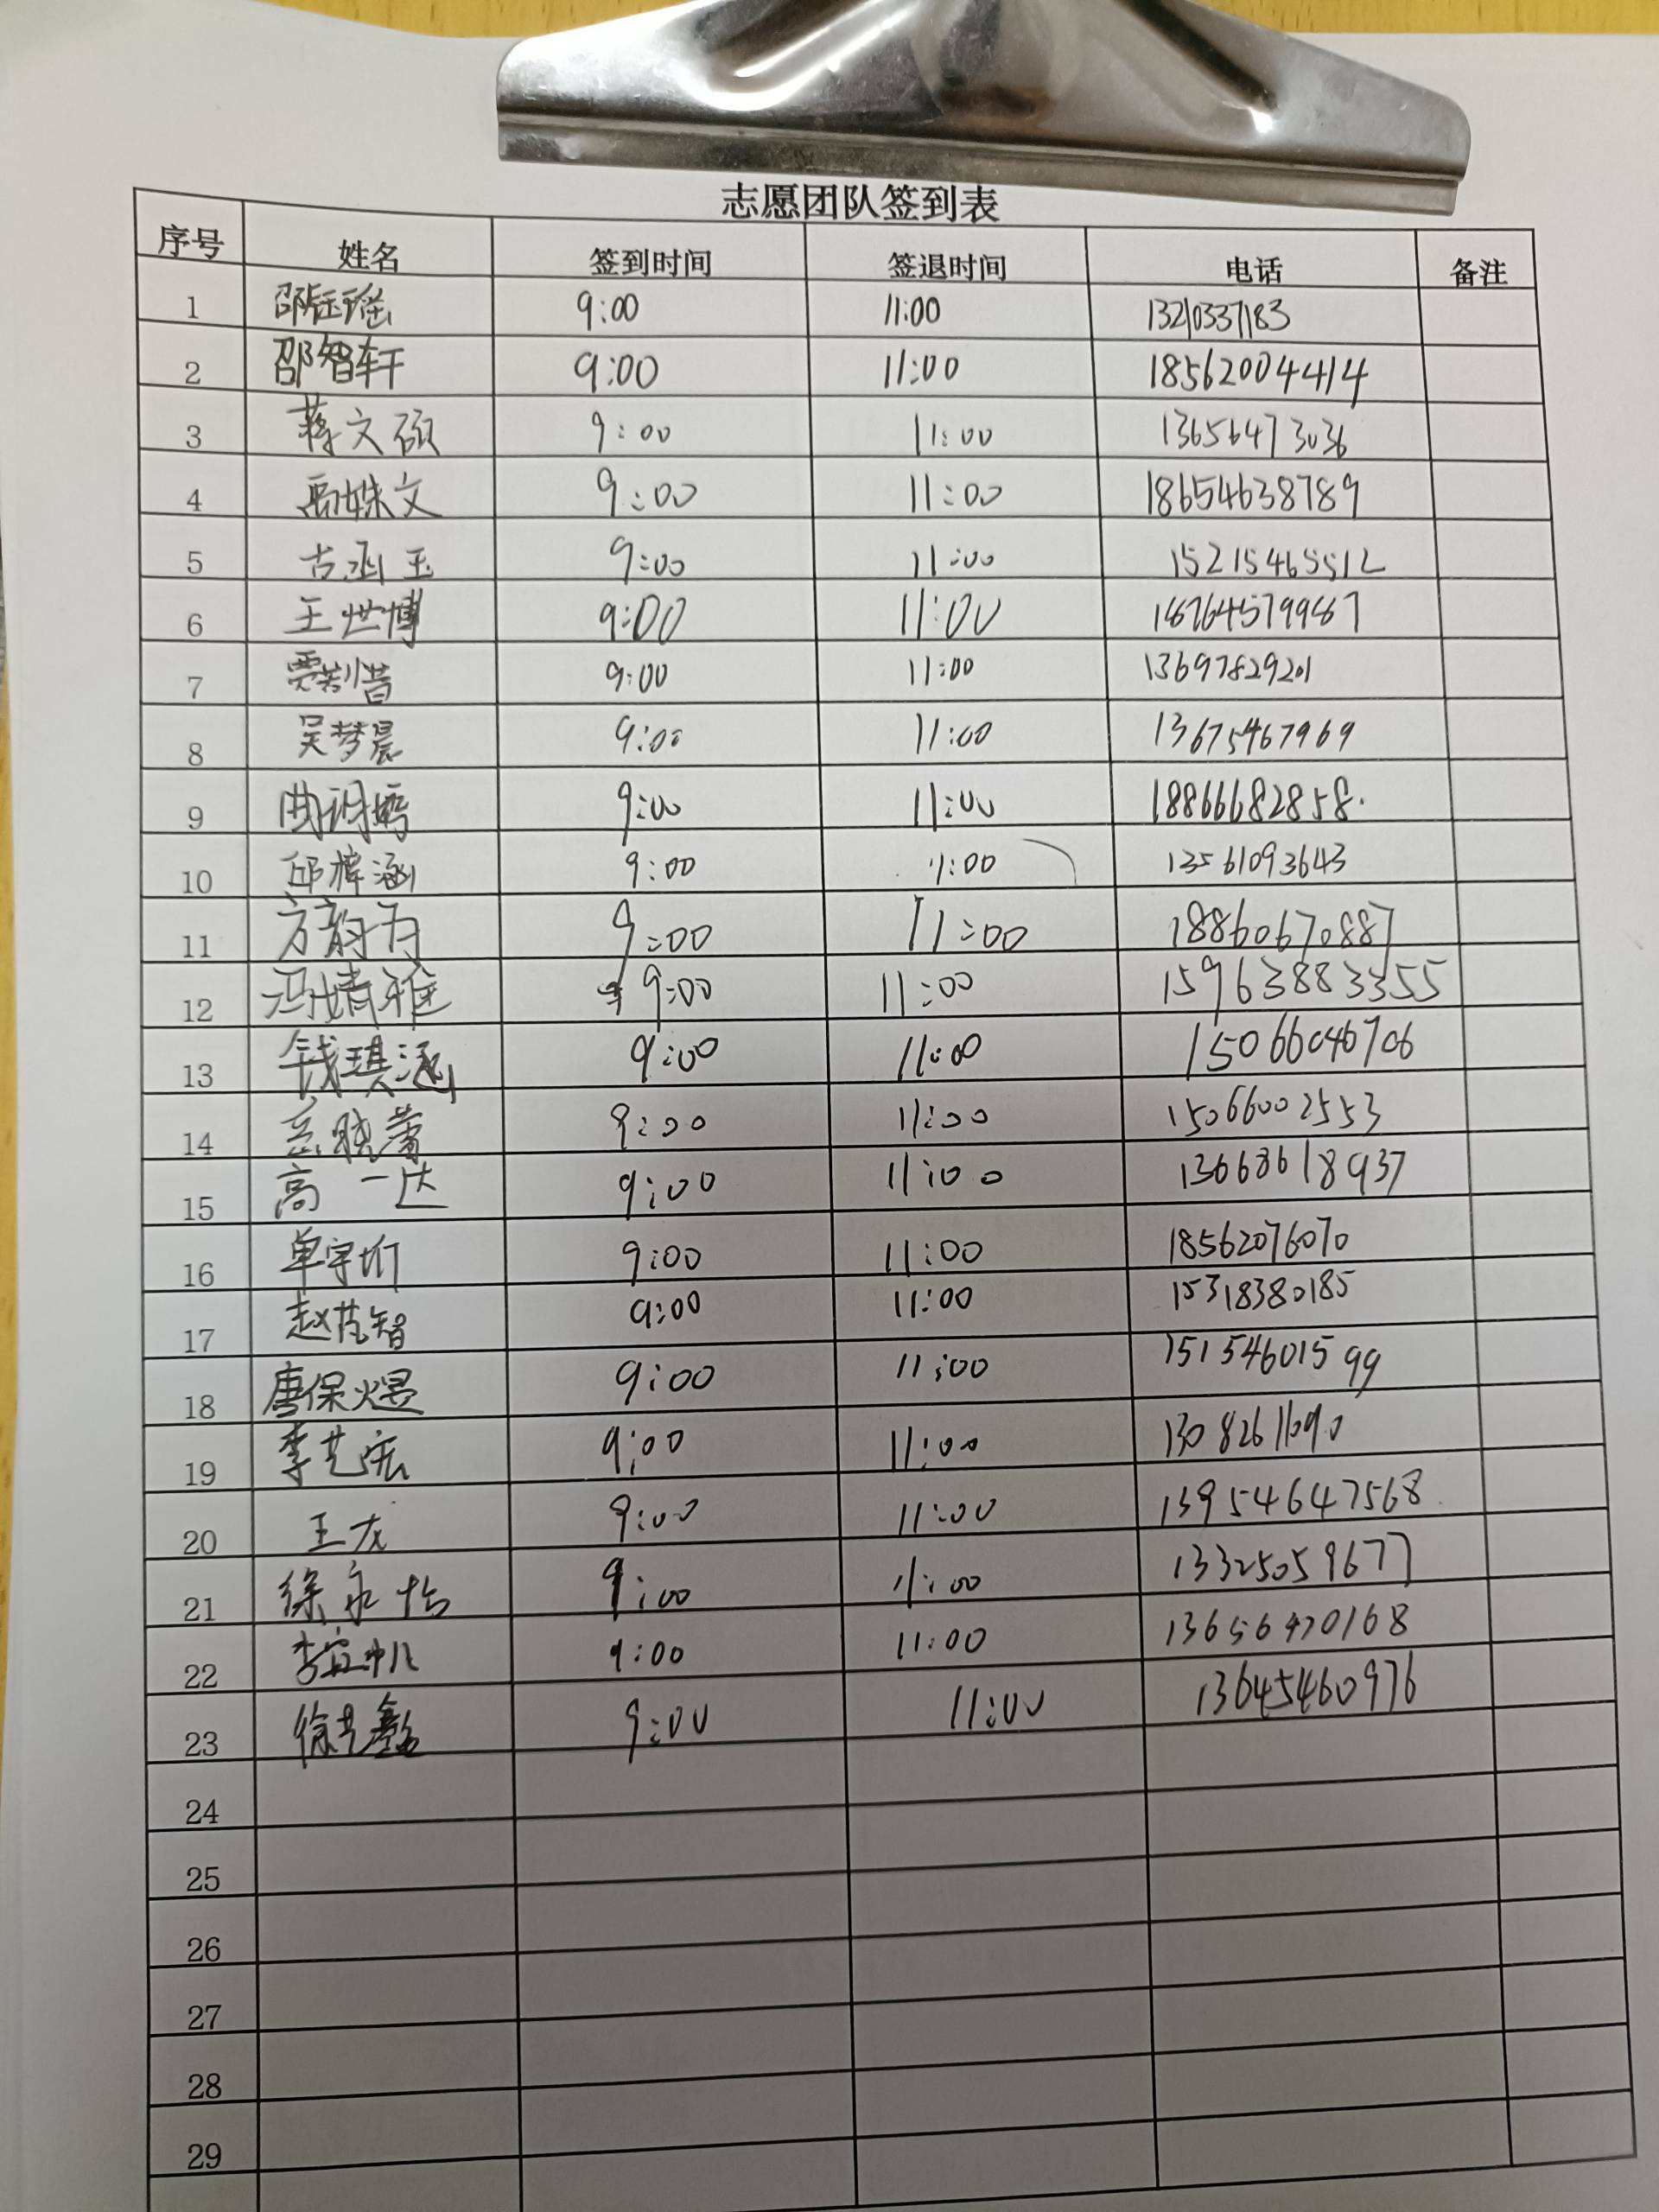 志愿团队签到表
序号 姓名 签到时间 签退时间 电话 备注
1 邵钰瑶 9:00 11:00 13210337183
2 邵智轩 9:00 11:00 18562004414
3 蒋文硕 9:00 11:00 13656473036
4 高姝文 9:00 11:00 18654638789
5 古涵玉 9:00 11:00 15215465512
6 王世博 9:00 11:00 18764579987
7 9:00 11:00 13697829201
8 吴梦晨 9:00 11:00 13675467969
9 9:00 11:00 18866682858.
10 邱梓涵 9:00 11:00 13561093643
11 方韵为 9:00 11:00 18860670887
12 冯婧雅 9:00 11:00 15963883355
13 钱琪涵 9:00 11:00 15066046706
14 9:00 11:00 15066002553
15 高一达 9:00 11:00 13668618937
16 单宇珩 9:00 11:00 18562076070
17 9:00 11:00 15318380185
18 唐保煜 9:00 11:00 15154601599
19 李艺宏 9:00 11:00 13082611090
20 王龙 9:00 11:00 13954647568
21 徐永怡 9:00 11:00 13325059677
22 李宜帆 9:00 11:00 13656470168
23 9:00 11:00 13645460976
24
25
26
27
28
29